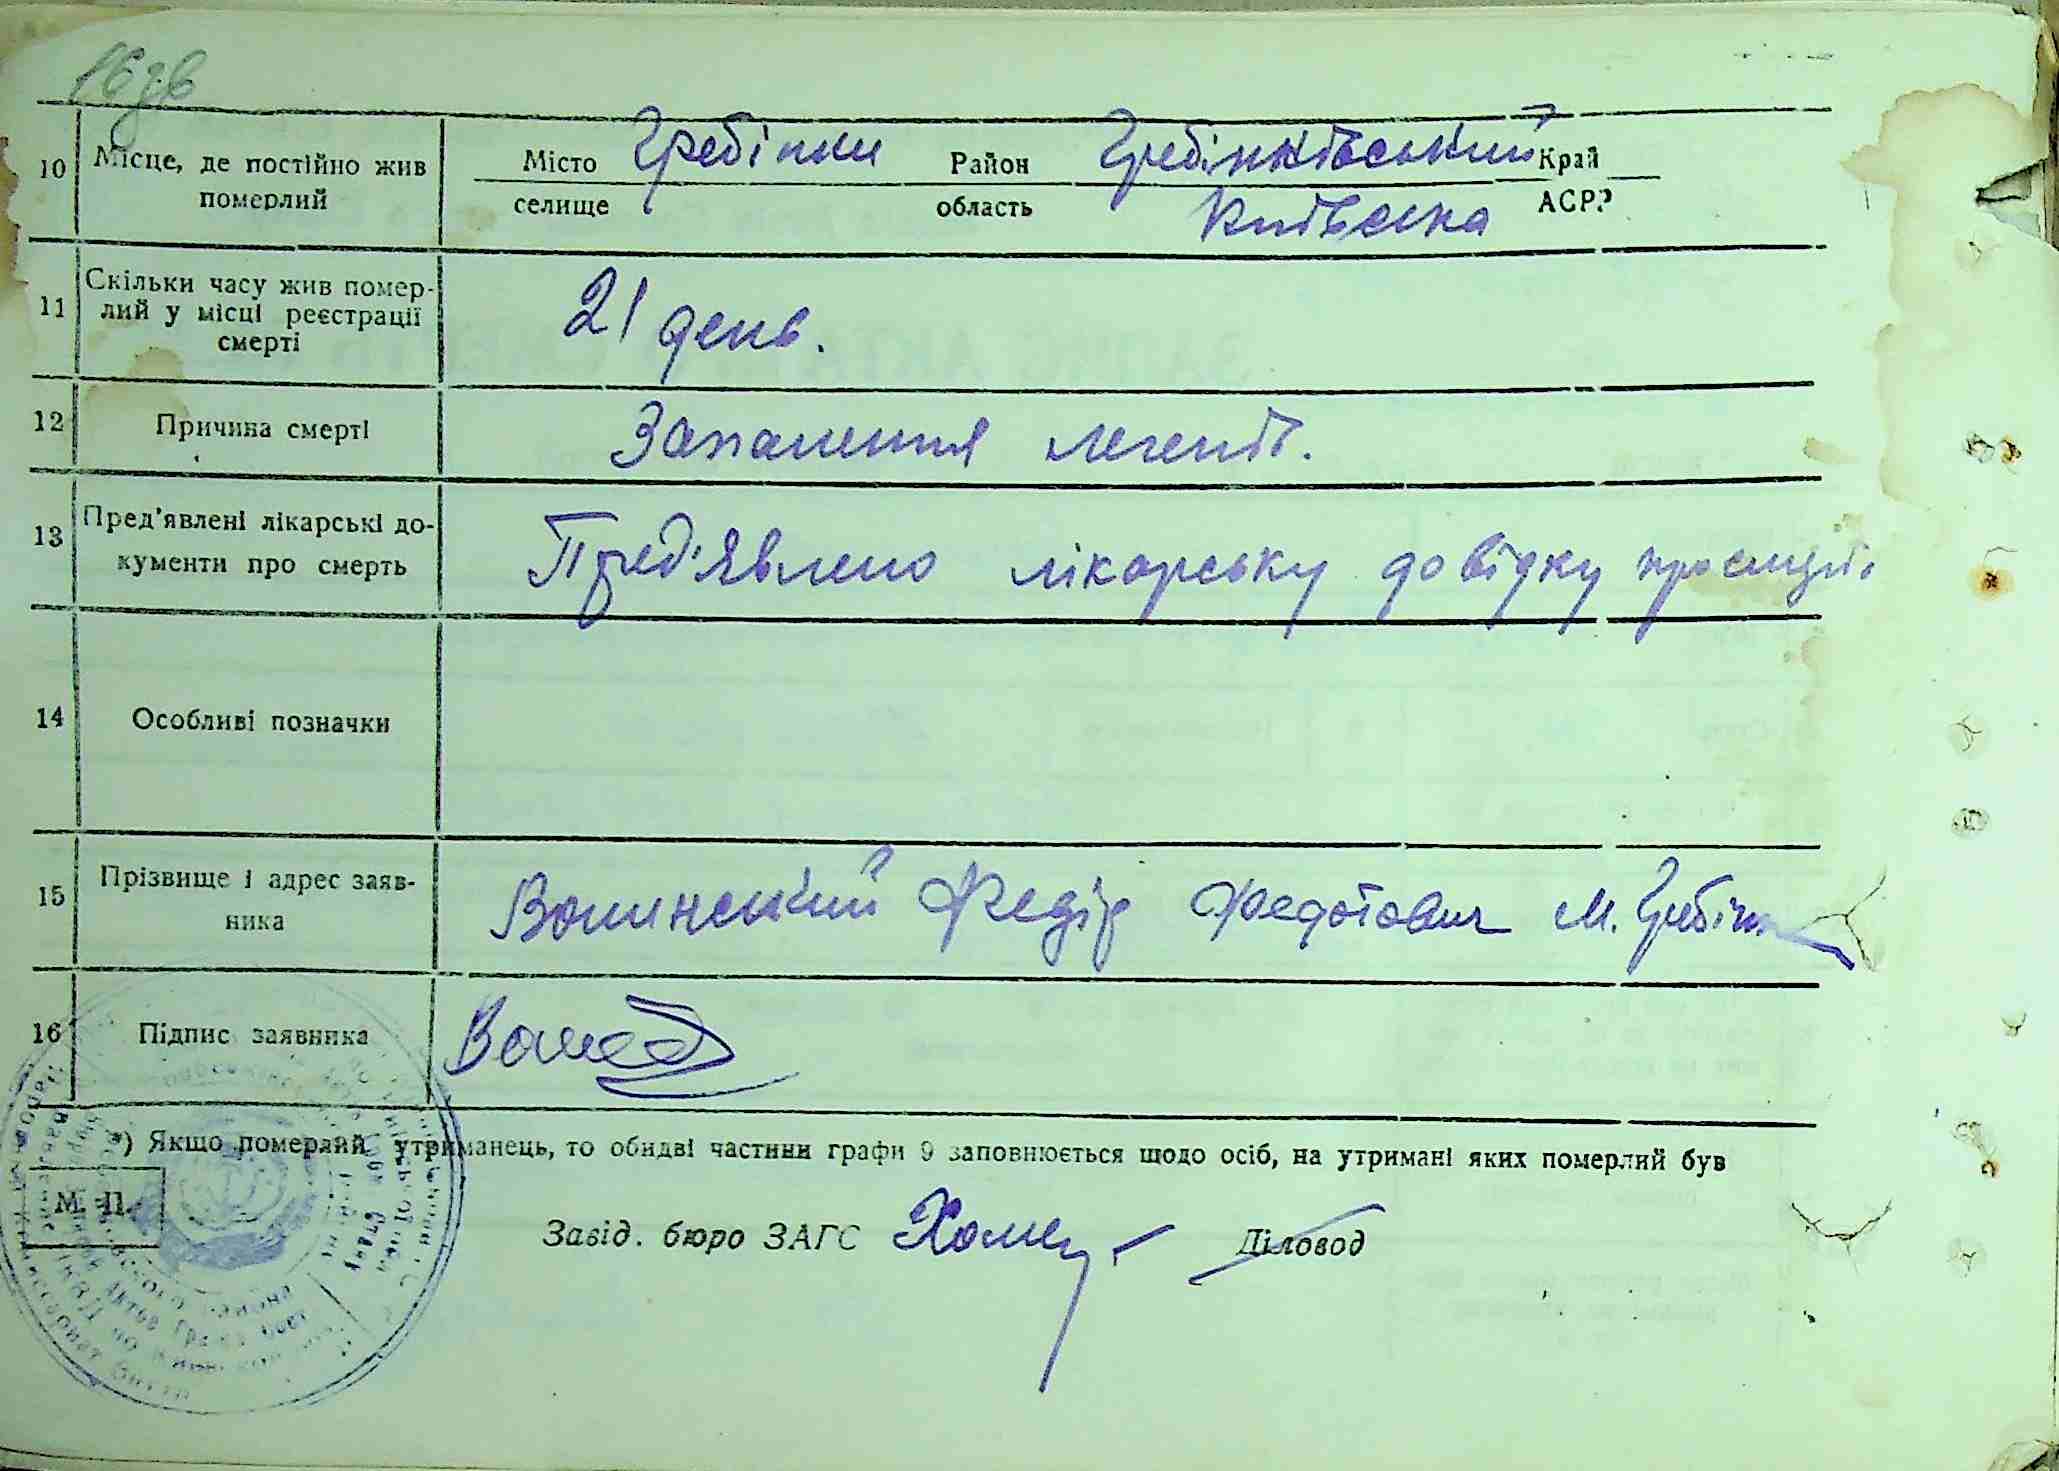 16 зв
10 Місце, де постійно жив померлий
Місто Гребінки Район Гребінківський Край
селище область Київська АСРР
11 Скільки часу жив помер-
лий у місці реєстрації
смерті
21 день.
12 Причина смерті Запалення легенів.
13 Пред'явлені лікарські до-
кументи про смерть
Пред'явлено лікарську довідку про смерть
14 Особливі позначки
15 Прізвище і адрес заяв-
ника
Волинський Федір Федотович М. Гребінки
16 Підпис заявника
*) Якщо померлий утриманець, то обидві частини графи 9 заповнюється щодо осіб, на утримані яких померлий був
М. П.
Завід. бюро ЗАГС Діловод